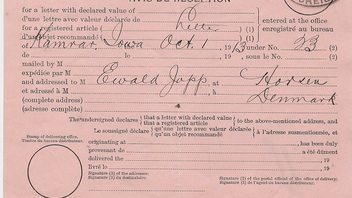 AVIS DE RÉCEPTION
for a letter with declared value of
d'une lettre avec valeur déclarée de
for a registered article (1) Letter (1)
d'un objet recommandé
entered at the office
enregistré au bureau
of Kamrar, Iowa Oct. 1 1913 under No. 23
de le 19 sous le No.
mailed by M
expédiée par M
and addressed to M Ewald Jopp at Horsen
et adressé à M à Denmark
(complete address)
(adresse complète)
The undersigned declares that a letter with declared value to the above-mentioned address, and
that a registered article
Le soussigné déclare qu'une lettre avec valeur déclarée à l'adresse susmentionnée, et
qu'un objet recommandé
Stamp of delivering office.
Timbre du bureau distributeur.
originating at has been duly
provenant de a été dûment
delivered the 19
livré le 19
Signature (2) of the addressee.
Signature (2) du destinataire.
Signature (2) of the postal official of the delivering office.
Signature (2) de l'agent du bureau distributeur.